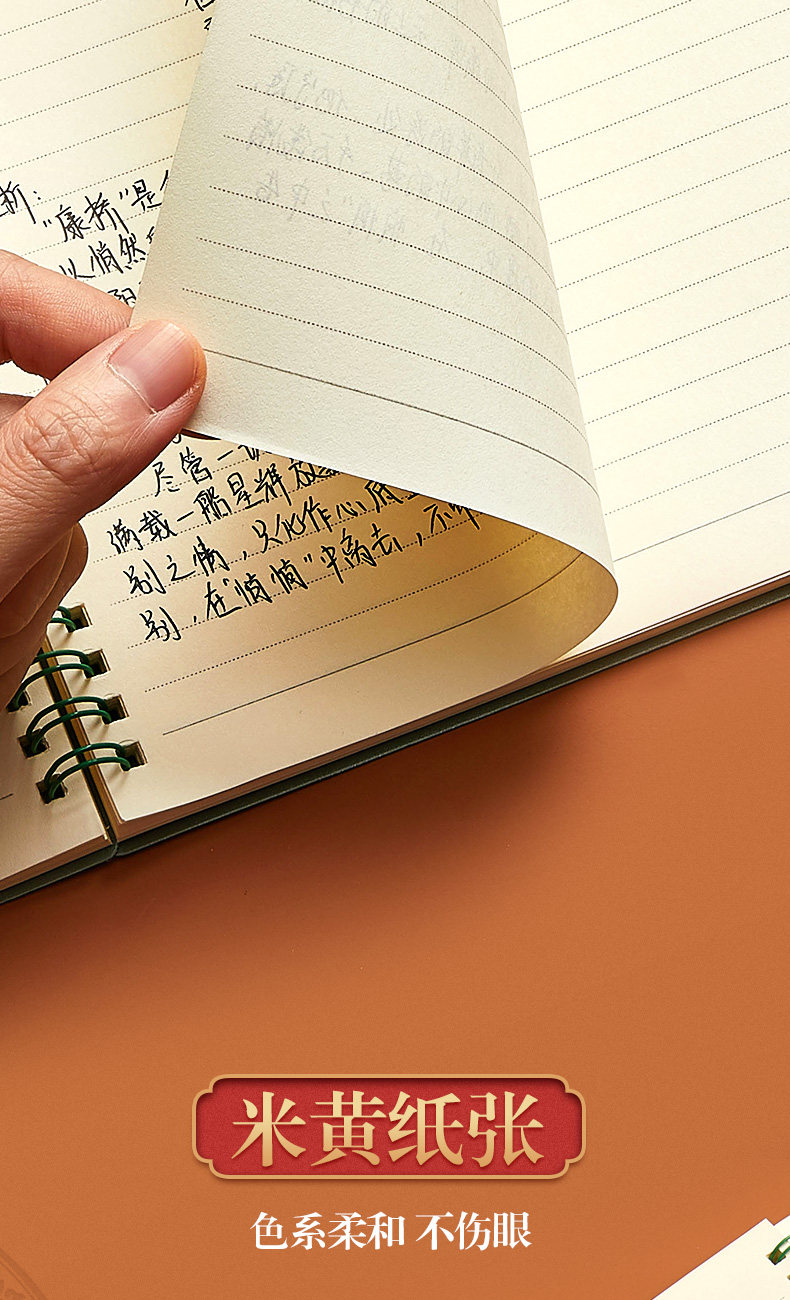 析：
"康桥"是
以悄然
尽管一
满载一船星辉放
别之情，只化作心底
别，在"悄悄"中离去，不
米黄纸张
色系柔和 不伤眼